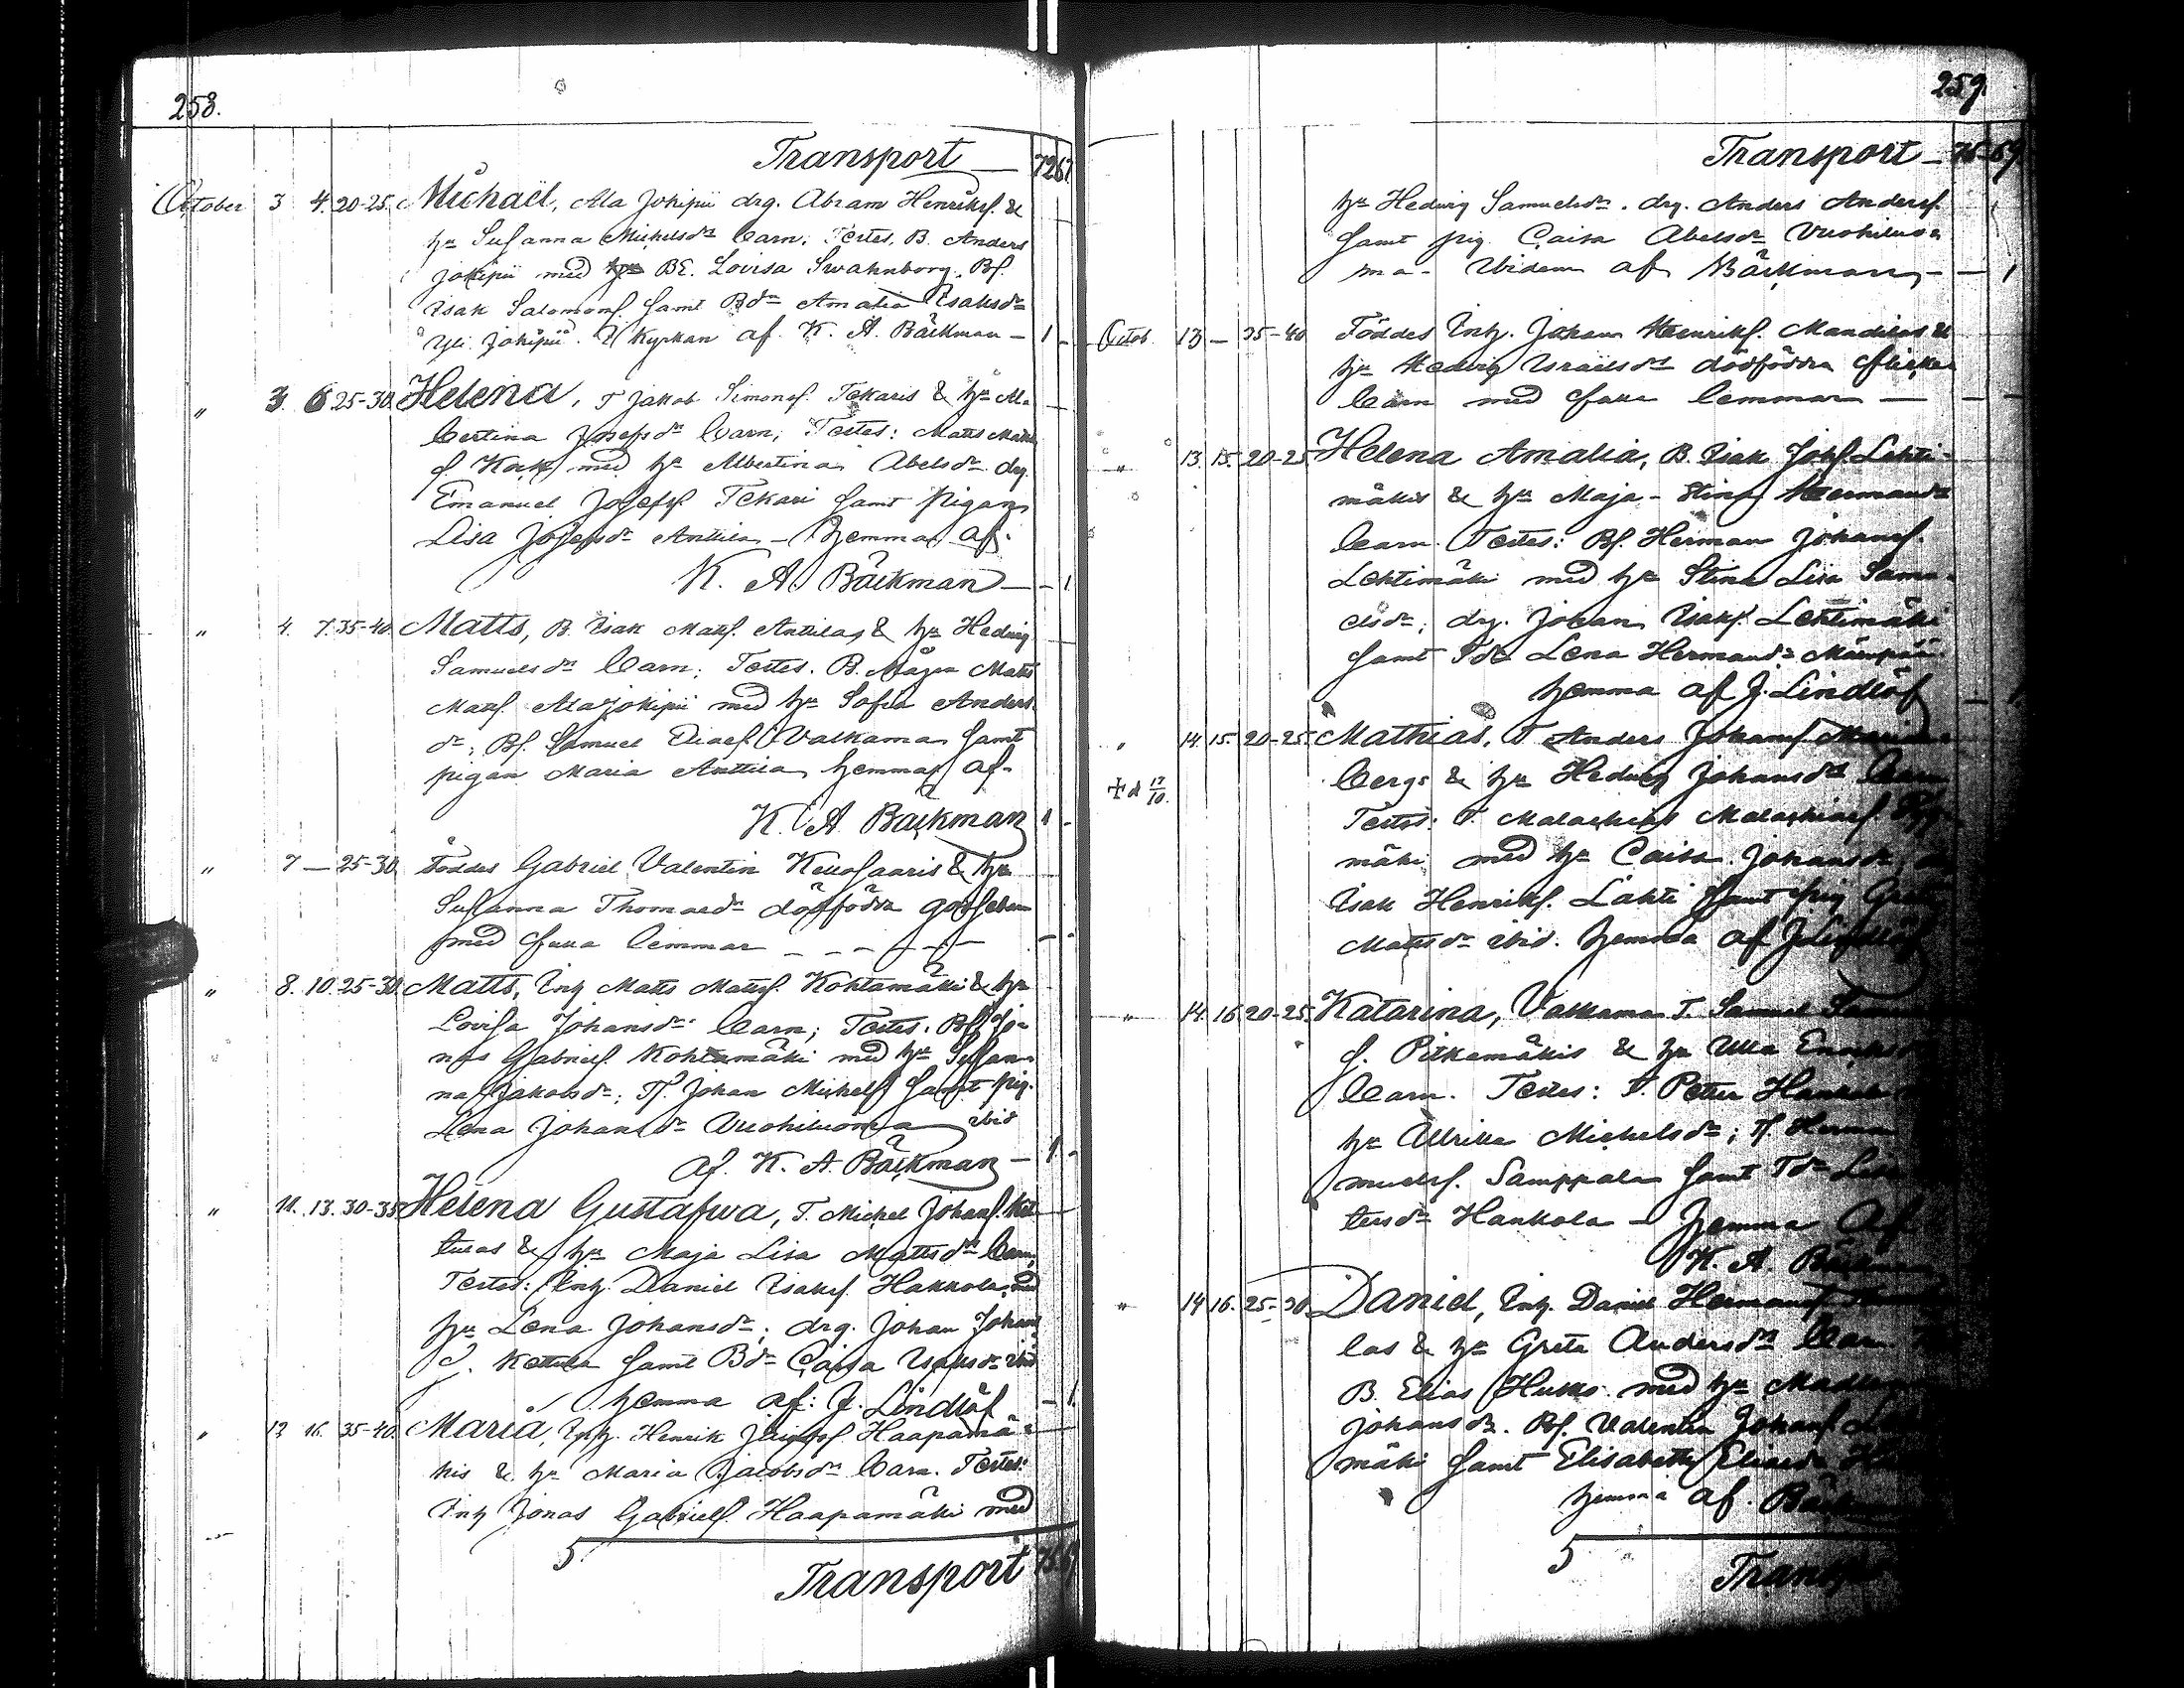 258.
Transport — 72 67
October 3 4. 20-25. Michaël, Ala Jokipii drg. Abram Henriks. &
h:u Susanna Michelsd:r barn; Testes, B. Anders
Jokipii med BE. Lovisa Swahnborg, Bs.
Isak Salomons. samt Bd:r Amalia Isaksd:r
Yli Jokipii. I Kyrkan af K. A. Bäckman — 1 -
" 3. 6 25-30. Helena, T Jakob Simons. Tekaris & h:u Al-
bertina Josefsd:r barn; Testes: Matts Matts
s Kock med h:u Albertina Abelsd:r drg.
Emanuel Josefs. Tekari samt pigan
Lisa Josefsd:r Anttila — hemma af.
K. A. Bäckman — - 1.
" 4. 7. 35-40. Matts, B. Isak Matts. Anttilas & h:u Hedvig
Samuelsd:r barn; Testes. B. Mågen Matts
Matts. Alajokipii med h:u Sofia Anders
d:r; Bs. Samuel Valkama samt
pigan Maria Anttila hemma af.
K. A. Bäckman 1 -
" 7 — 25-30. Föddes Gabriel Valentin Keltosaaris & h:u
Susanna Thomasd:r dödfödda gossebarn
med fulla lemmar — — — — —
" 8. 10. 25-30. Matts, Inh Matts Matts. Kohtamäki & h:u
Lovisa Johansd:r barn; Testes. Bs Jo-
nas Gabriels. Kohtamäki med h:u Susan-
na Jakobsd:r; Ts. Johan Michels samt pig.
Lena Johansd:r Wuohiluoma ibid
af. K. A. Bäckman — 1 -
" 11. 13. 30-35 Helena Gustafwa, T. Michel Johans. Ket-
tulas & h:u Maja Lisa Mattsd:r barn;
Testes: Inh. Daniel Isaks. Hakkola, med
h:u Lena Johansd:r; drg. Johan Johans
s. Kettula samt Bd:r Caisa Isaksd:r ibid
hemma af: J. Lindlöf - 1.
" 13 16. 35-40. Maria, Inh. Henrik Haapamä-
kis & h:u Maria Jacobsd:r barn. Testes:
Inh Jonas Gabriels. Haapamäki med
5
Transport
259.
Transport —
h:u Hedvig Samuelsd:r. drg. Anders Anders.
samt pig. Caisa Abelsd:r Vuohiluo-
ma - Ibidem af Bäckman — — 1
Octob. 13 — 35-40 Föddes Inh. Johan Henriks. Mandilas &
h:u Hedvig Israelsd:r dödfödda flicke
barn med fulla lemmar — - -
" 13. 15. 20-25. Helena Amalia, B. Isak Johs. Lehti-
mäkis & h:u Maja-Stina Hermansd:r
barn. Testes: Bs. Herman Johans.
Lehtimäki med h:u Stina Lisa Samu-
elsd:r; drg. Johan Isaks. Lehtimäki
samt Td:r Lena Hermansd:r
hemma af J. Lindlöf
" 14. 15. 20-25. Mathias, T Anders Johans
bergs & h:u Hedvig Johansd:r barn
† d 17/10.
Testes: T. Malachias Malachias.
mäki med h:u Caisa Johansd:r;
Isak Henriks. Lahti samt pig
Mattsd:r ibid. hemma af J Lindlöf
" 14. 16 20-25. Katarina, Valkama T. Samuel
s. Pitkämäkis & h:u Ulla
barn. Testes: T. Petter Hankola
h:u Ullrika Michelsd:r; Ts.
muels. Samppala samt Td:r Lisa
tersd:r Hankola — hemma af
K. A.
" 14 16. 25-30. Daniel, Inh. Daniel
las & h:u Greta Andersd:r barn
B. Elias Husko med h:u
Johansd:r. Bs. Valentin Johans.
mäki samt Elisabeth Eliasd:r
hemma af.
5
Transport